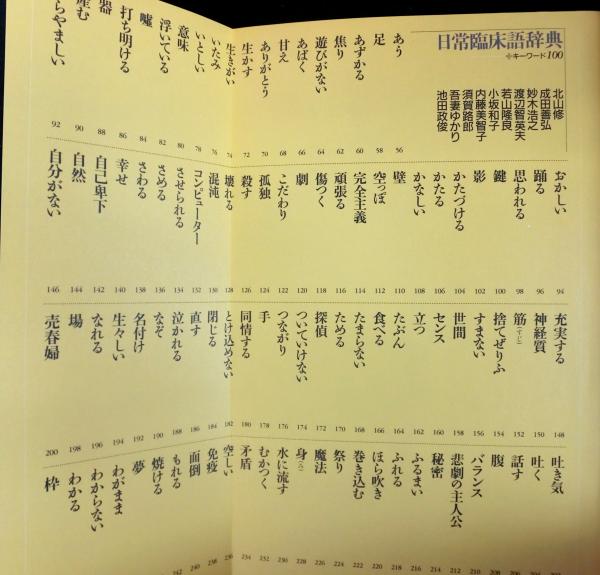 日常臨床語辞典
✢キーワード100
北山修
成田善弘
妙木浩之
渡辺智英夫
若山隆良
小坂和子
内藤美智子
須賀路郎
吾妻ゆかり
池田政俊
あう 56
足 58
あずかる 60
焦り 62
遊びがない 64
あばく 66
甘え 68
ありがとう 70
生かす 72
生きがい 74
いたみ 76
いとしい 78
意味 80
浮いている 82
嘘 84
打ち明ける 86
器 88
産む 90
らやましい 92
おかしい 94
踊る 96
思われる 98
鍵 100
影 102
かたづける 104
かたる 106
かなしい 108
壁 110
空っぽ 112
完全主義 114
頑張る 116
傷つく 118
劇 120
こだわり 122
孤独 124
殺す 126
壊れる 128
混沌 130
コンピューター 132
させられる 134
さめる 136
さわる 138
幸せ 140
自己卑下 142
自然 144
自分がない 146
充実する 148
神経質 150
筋(すじ) 152
捨てぜりふ 154
すまない 156
世間 158
センス 160
立つ 162
たぶん 164
食べる 166
たまらない 168
ためる 170
探偵 172
ついていけない 174
つながり 176
手 178
同情する 180
とけ込めない 182
閉じる 184
直す 186
泣かれる 188
なぞ 190
名付け 192
生々しい 194
なれる 196
場 198
売春婦 200
吐き気
吐く
話す 206
腹 208
バランス 210
悲劇の主人公 212
秘密 214
ふるまい 216
ふれる 218
ほら吹き 220
巻き込む 222
祭り 224
魔法 226
身(み) 228
水に流す 230
むかつく 232
矛盾 234
空しい 236
免疫 238
面倒 240
もれる 242
焼ける
夢
わがまま
わからない
わかる
枠